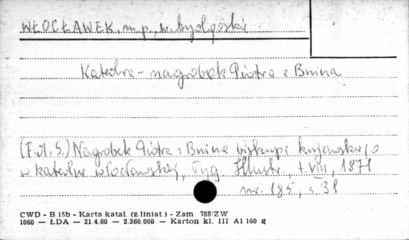 WŁOCŁAWEK, m. p., w. bydgoskie
Katedra - nagrobek Piotra z Bnina
(F. M. S.) Nagrobek Piotra z Bnina biskupa kujawskiego
w katedrze włocławskiej, Tyg. Illustr., t. VIII, 1871
nr. 185, s. 31
CWD - B 15b - Karta katal. (z liniat.) - Zam. 788/ZW
1060 — ŁDA — 21.4.60 — 2.360.000 — Karton kl. III A1 160 g